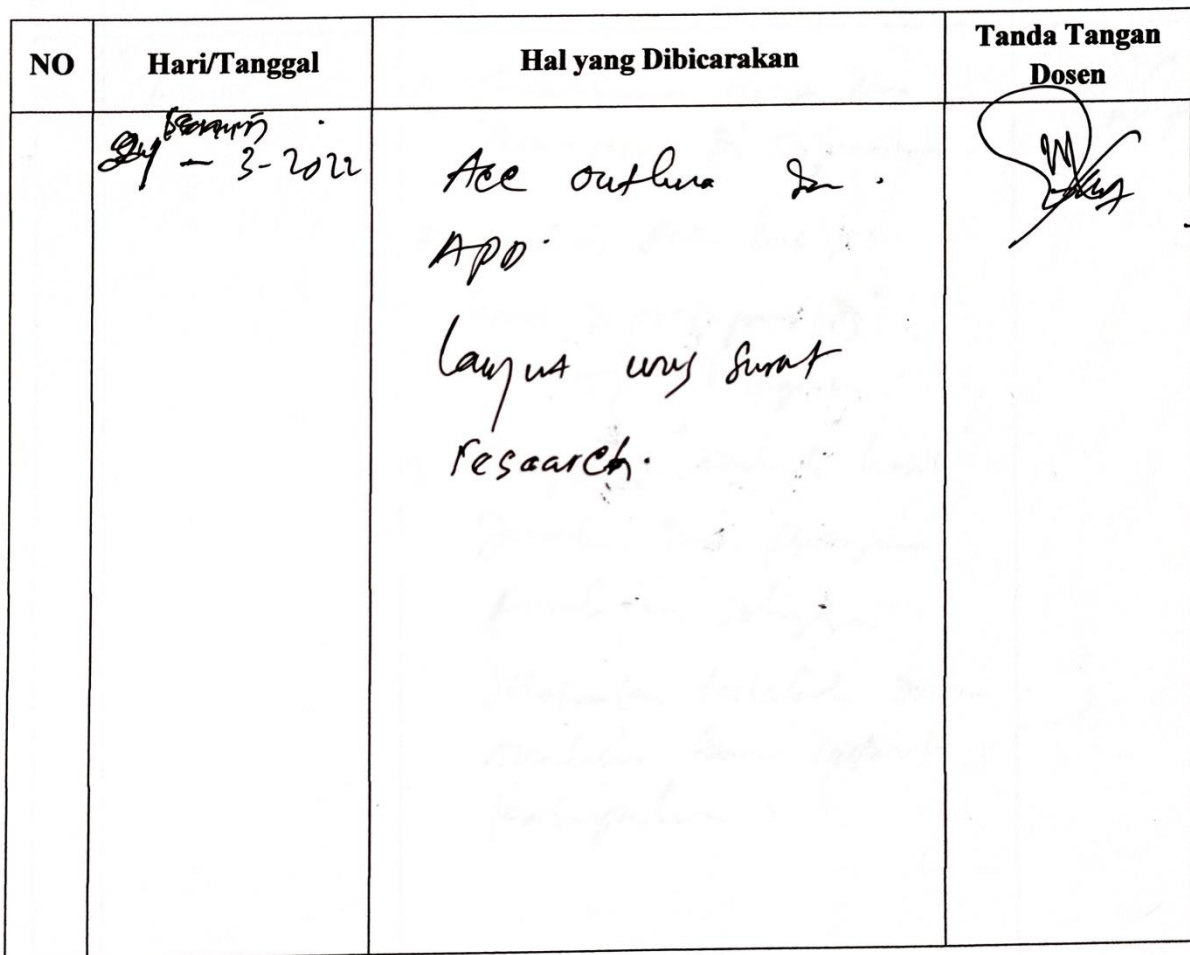 NO
Hari/Tanggal
Hal yang Dibicarakan
Tanda Tangan
Dosen
- 3-2022
Acc outline dan
APD.
Lanjut urus surat
research.